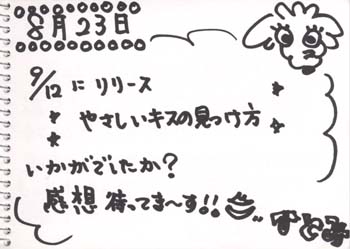 8月23日
9/12 に リリース
やさしいキスの見つけ方
いかがでしたか?
感想 待ってま〜す!!